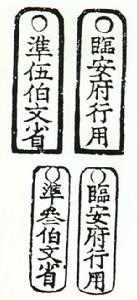 臨安府行用
準伍伯文省
臨安府行用
準叁伯文省